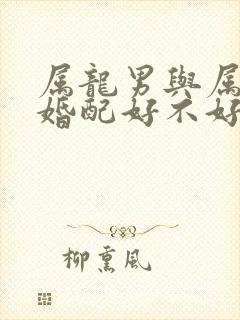 属龍男與属
婚配好不好
柳熏風